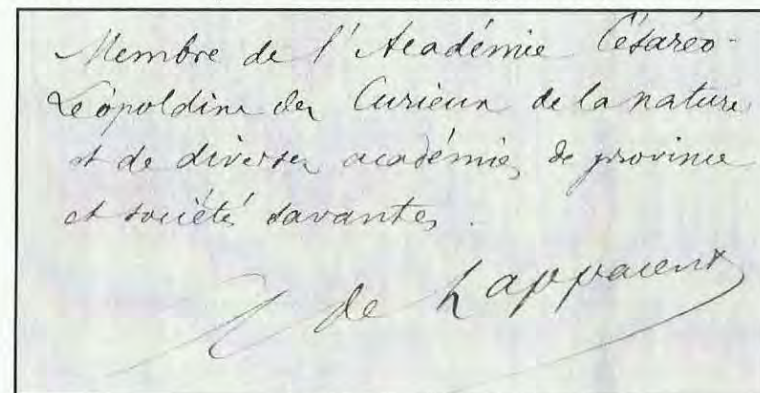 Membre de l'Académie Césaréo-
Léopoldine des Curieux de la nature
et de diverses académies de province
et sociétés savantes.
de Lapparent